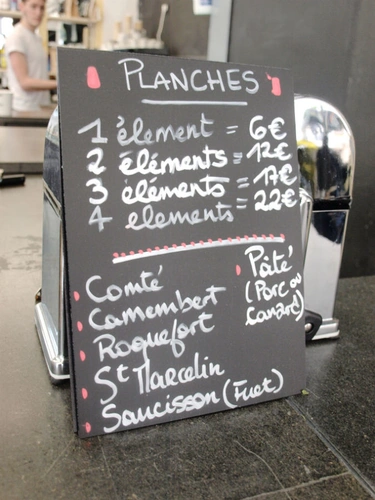 PLANCHES
1 élement = 6€
2 éléments = 12€
3 élements = 17€
4 elements = 22€
Comté
Camembert
Roquefort
St Marcelin
Saucisson (Fuet)
Pâté
(Porc ou
Canard)